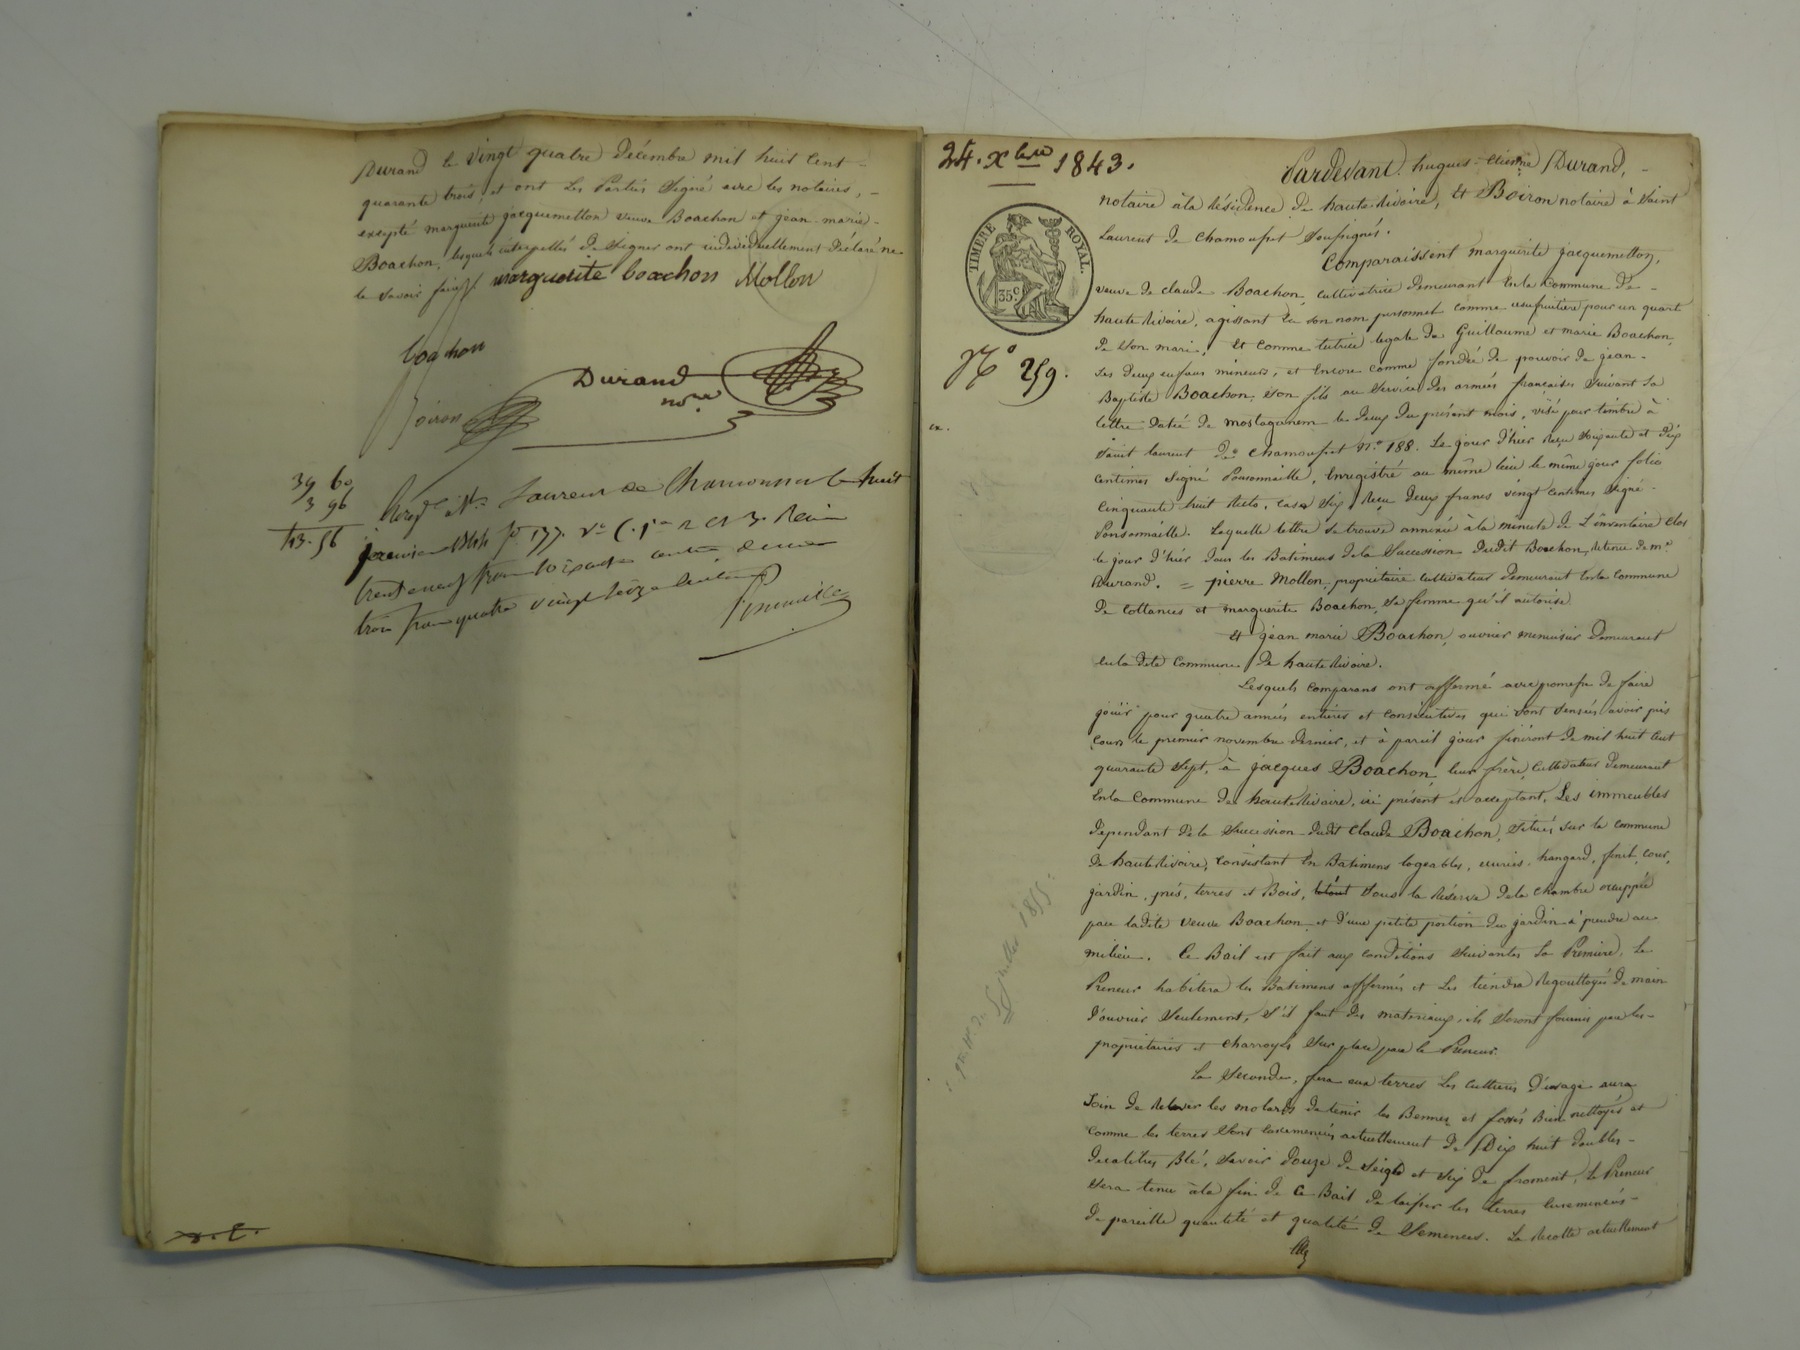 Durand le Vingt quatre décembre mil huit cent
quarante trois, et ont les Parties Signé avec les notaires,
excepté marguerite jacquemetton veuve Boachon et jean marie
Boachon, lesquels interpellés de signer ont individuellement déclaré ne
le savoir faire
marguerite boachon Mollon
boachon
Durand
nore
Boiron
39 60
3 96
43. 56
Enregé à St Laurent de Chamousset le huit
janvier 1844 fo 177. vo C. 1re 2 et 3. Reçu
trente neuf francs soixante centimes, decime
trois francs quatre vingt seize centimes
Ponsonnaille
24. Xbre 1843.
TIMBRE ROYAL.
35 c
No 259.
Pardevant hugues-etienne Durand,
notaire à la Résidence de haute Rivoire, Et Boiron notaire à Saint
Laurent de Chamousset Soussignés.
Comparaissent marguerite jacquemetton,
veuve de claude Boachon, cultivatrice demeurant en la Commune de
haute Rivoire, agissant en son nom personnel comme usufruitière pour un quart
de Son mari, Et Comme tutrice legale de Guillaume et marie Boachon,
ses deux enfans mineurs, et Encore comme fondée de pouvoir de jean-
Baptiste Boachon, Son fils au Service des armées françaises Suivant Sa
lettre datée de mostaganem le deux du présent mois, visé pour timbre à
Saint laurent de chamousset No 188. Le jour d'hier Reçu Soixante et dix
centimes Signé Ponsonnaille, Enregistré au même lieu le même jour folio
Cinquante huit Recto, case Six, Reçu deux francs vingt centimes Signé
Ponsonnaille. Laquelle lettre se trouve annexée à la minute de L'inventaire clos
le jour d'hier dans les Batimens de la Succession dudit Boachon, Retenu de me
Durand. = pierre Mollon, propriétaire cultivateur demeurant En la Commune
de Cottances et marguerite Boachon, Sa femme qu'il autorise
Et jean marie Boachon, ouvrier menuisier demeurant
en la dite Commune de haute Rivoire.
Lesquels comparans ont affermé avec promesse de faire
jouir pour quatre années entières et consécutives qui sont sensées avoir pris
cours le premier novembre dernier, et à pareil jour finiront de mil huit cent
quarante Sept, à jacques Boachon leur frère, Cultivateur demeurant
En la Commune de haute Rivoire, ici présent et acceptant, Les immeubles
dépendant de la Succession dudit Claude Boachon, Situés sur la commune
de haute Rivoire, Consistant En Batimens logeables, ecuries, hangard, fenil, cour,
jardin, prés, terres et Bois, le tout Sous la Réserve de la chambre occuppée
par ladite veuve Boachon et d'une petite portion du jardin à prendre au
milieu. Ce Bail est fait aux conditions Suivantes La Premiere, le
Preneur habitera les Batimens affermés et Les tiendra Regouttoyés de main
d'ouvrier Seulement, S'il faut des materiaux, ils Seront fournis par les
propriétaires et charroyés Sur place par le Preneur.
La Seconde, fera aux terres Les cultures d'usage aura
Soin de Relever les molards de tenir les Bennes et fossés Bien nettoyés et
Comme les terres Sont Ensemencées actuellement de Dix huit doubles
decalitres Blé, Savoir douze de Seigle et Six de froment, le Preneur
Sera tenu à la fin de Ce Bail de laisser les terres Ensemencées
de pareille quantité et qualité de Semences. La Recolte actuellement
juillet 1855